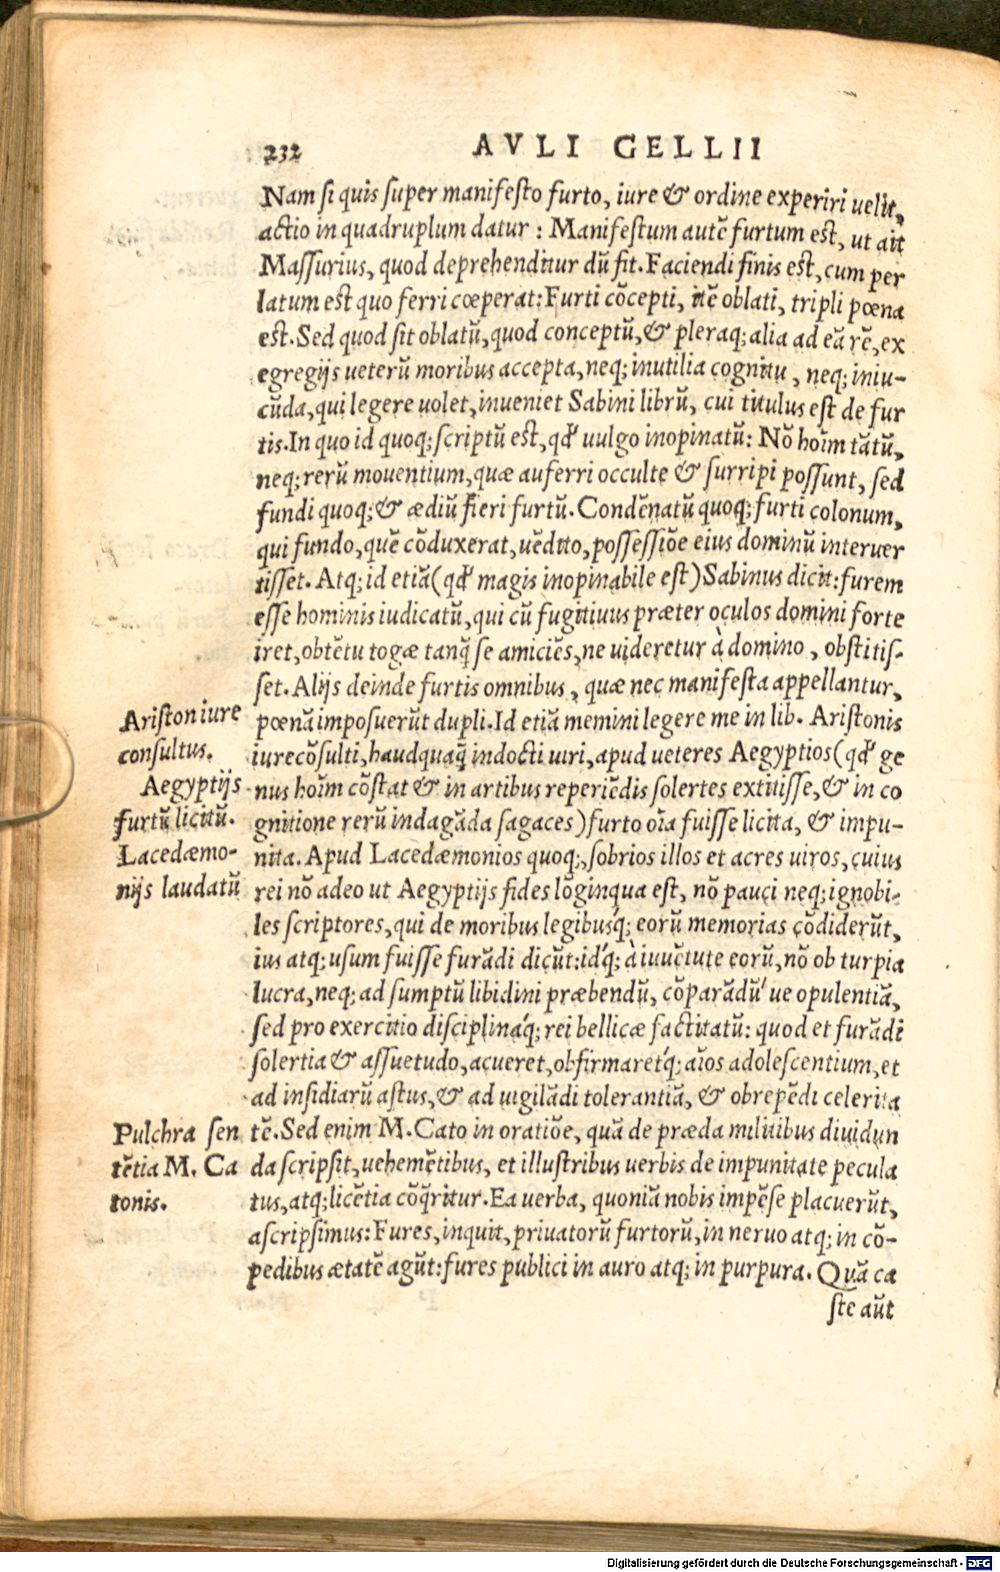 232 AVLI GELLII
Nam si quis super manifesto furto, iure & ordine experiri uelit,
actio in quadruplum datur : Manifestum autē furtum est, ut ait
Massurius, quod deprehenditur dū fit. Faciendi finis est, cum per
latum est quo ferri cœperat: Furti cōcepti, itē oblati, tripli pœna
est. Sed quod sit oblatū, quod conceptū, & pleraq; alia ad eā rē, ex
egregijs ueterū moribus accepta, neq; inutilia cognitu, neq; iniu-
cūda, qui legere uolet, inueniet Sabini librū, cui titulus est de fur
tis. In quo id quoq; scriptū est, qđ uulgo inopinatū: Nō hoīm tātū,
neq; rerū mouentium, quæ auferri occulte & surripi possunt, sed
fundi quoq; & ædiū fieri furtū. Condēnatū quoq; furti colonum,
qui fundo, quē cōduxerat, uēdito, possessiōe eius dominū interuer
tisset. Atq; id etiā (qđ magis inopinabile est) Sabinus dicit: furem
esse hominis iudicatū, qui cū fugitiuus præter oculos domini forte
iret, obtētu togæ tanq̄ se amiciēs, ne uideretur à domino, obstitis-
set. Alijs deinde furtis omnibus, quæ nec manifesta appellantur,
Ariston iure
consultus.
pœnā imposuerūt dupli. Id etiā memini legere me in lib. Aristonis
iurecōsulti, haudquaq̄ indocti uiri, apud ueteres Aegyptios (qđ ge
Aegyptijs
furtū licitū.
nus hoīm cōstat & in artibus reperiēdis solertes extitisse, & in co
gnitione rerū indagāda sagaces) furto oīa fuisse licita, & impu-
Lacedæmo-
nijs laudatū
nita. Apud Lacedæmonios quoq;, sobrios illos et acres uiros, cuius
rei nō adeo ut Aegyptijs fides lōginqua est, nō pauci neq; ignobi-
les scriptores, qui de moribus legibusq́; eorū memorias cōdiderūt,
ius atq; usum fuisse furādi dicūt: idq́; à iuuētute eorū, nō ob turpia
lucra, neq; ad sumptū libidini præbendū, cōparādū ue opulentiā,
sed pro exercitio disciplinaq́; rei bellicæ factitatū: quod et furādi
solertia & assuetudo, acueret, obfirmaretq́; aīos adolescentium, et
ad insidiarū astus, & ad uigilādi tolerantiā, & obrepēdi celerita
Pulchra sen
tētia M. Ca
tonis.
tē. Sed enim M. Cato in oratiōe, quā de præda militibus diuidun
da scripsit, uehemētibus, et illustribus uerbis de impunitate pecula
tus, atq; licētia cōq̄ritur. Ea uerba, quoniā nobis impēse placuerūt,
ascripsimus: Fures, inquit, priuatorū furtorū, in neruo atq; in cō-
pedibus ætatē agūt: fures publici in auro atq; in purpura. Quā ca
ste aūt
Digitalisierung gefördert durch die Deutsche Forschungsgemeinschaft - DFG